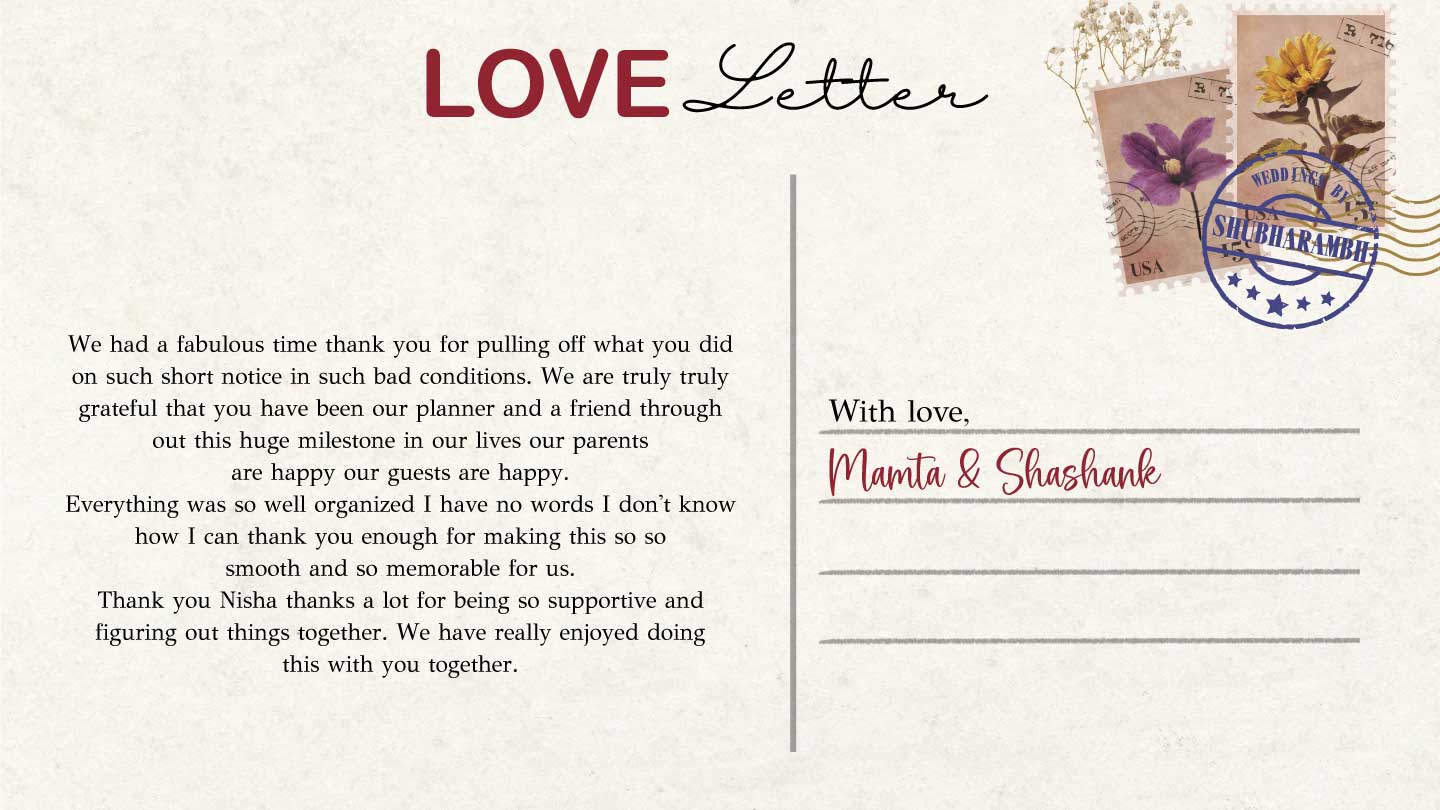 LOVE Letter
R 716
R 71
WEDDINGS BY
SHUBHARAMBH
USA
15c
USA
15c
We had a fabulous time thank you for pulling off what you did
on such short notice in such bad conditions. We are truly truly
grateful that you have been our planner and a friend through
out this huge milestone in our lives our parents
are happy our guests are happy.
Everything was so well organized I have no words I don't know
how I can thank you enough for making this so so
smooth and so memorable for us.
Thank you Nisha thanks a lot for being so supportive and
figuring out things together. We have really enjoyed doing
this with you together.
With love,
Mamta & Shashank